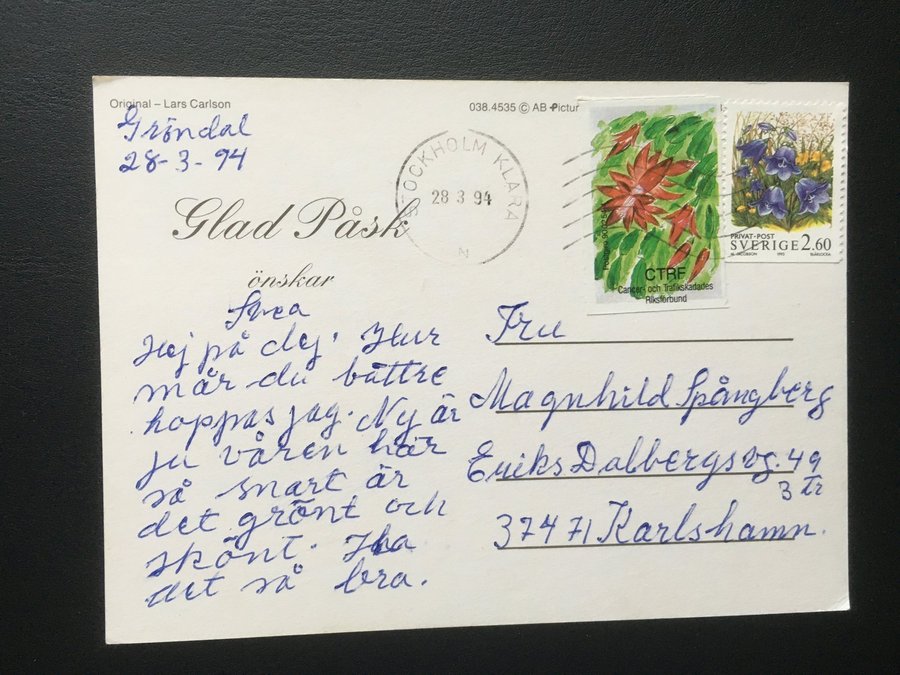 Original – Lars Carlson
038.4535 © AB Pictur
Gröndal
28-3-94
STOCKHOLM KLARA
28 3 94
N
Glad Påsk
önskar
Svea
Hej på dej. Hur
mår du bättre
hoppas jag. Ny är
ju våren här
så snart är
det grönt och
skönt. Ha
det så bra.
CTRF
Cancer- och Trafikskadades
Riksförbund
PRIVAT-POST
SVERIGE 2.60
1993 BLÅKLOCKA
Fru
Magnhild Spångberg
Eriks Dalbergsvg. 49
3 tr
37471 Karlshamn.